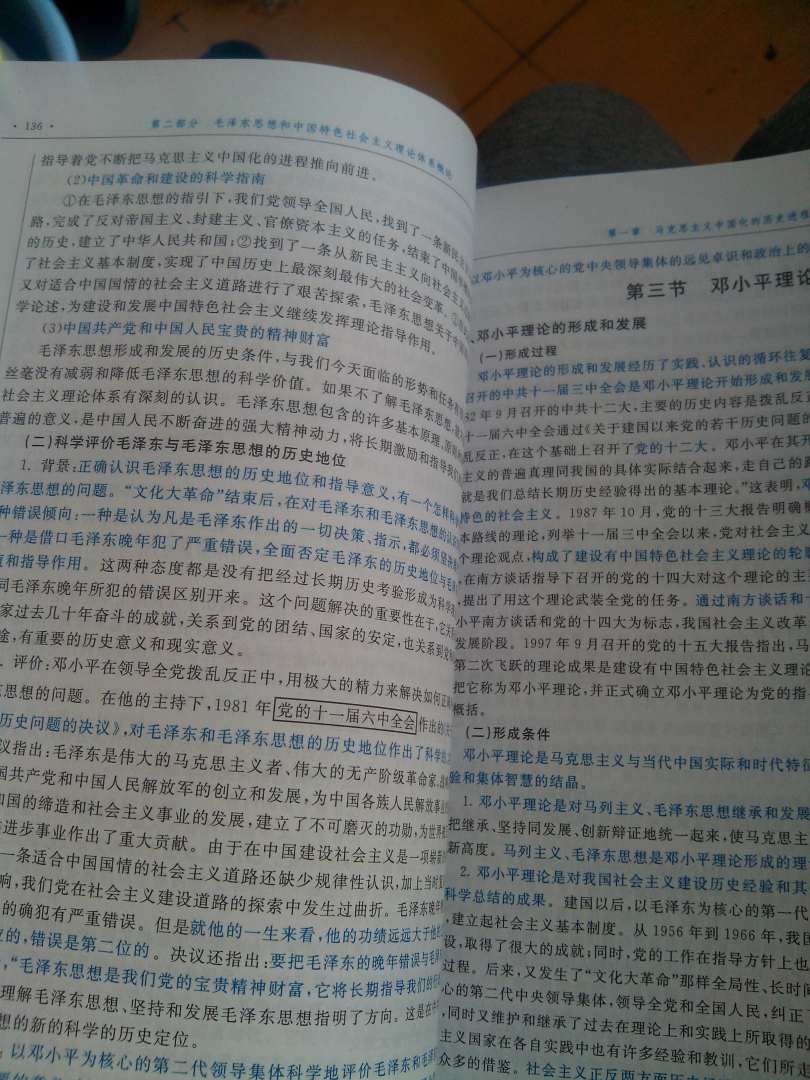 · 136 ·
第二部分 毛泽东思想和中国特色社会主义理论体系概论
指导着党不断把马克思主义中国化的进程推向前进。
(2)中国革命和建设的科学指南
①在毛泽东思想的指引下,我们党领导全国人民,找到了一条新民主
路,完成了反对帝国主义、封建主义、官僚资本主义的任务,结束了中国
的历史,建立了中华人民共和国;②找到了一条从新民主主义向社会主义
了社会主义基本制度,实现了中国历史上最深刻最伟大的社会变革。
又对适合中国国情的社会主义道路进行了艰苦探索,毛泽东思想关于
学论述,为建设和发展中国特色社会主义继续发挥理论指导作用。
(3)中国共产党和中国人民宝贵的精神财富
毛泽东思想形成和发展的历史条件,与我们今天面临的形势和任务
丝毫没有减弱和降低毛泽东思想的科学价值。如果不了解毛泽东思想,
社会主义理论体系有深刻的认识。毛泽东思想包含的许多基本原理、
普遍的意义,是中国人民不断奋进的强大精神动力,将长期激励和指导我们
(二)科学评价毛泽东与毛泽东思想的历史地位
1. 背景:正确认识毛泽东思想的历史地位和指导意义,有一个怎样
泽东思想的问题。“文化大革命”结束后,在对毛泽东和毛泽东思想的
种错误倾向:一种是认为凡是毛泽东作出的一切决策、指示,都必须
一种是借口毛泽东晚年犯了严重错误,全面否定毛泽东的历史地位与毛
和指导作用。这两种态度都是没有把经过长期历史考验形成为科学
同毛泽东晚年所犯的错误区别开来。这个问题解决的重要性在于,它
家过去几十年奋斗的成就,关系到党的团结、国家的安定,也关系到党
途,有重要的历史意义和现实意义。
. 评价:邓小平在领导全党拨乱反正中,用极大的精力来解决如何
思想的问题。在他的主持下,1981 年党的十一届六中全会作出的
历史问题的决议》,对毛泽东和毛泽东思想的历史地位作出了科学
议指出:毛泽东是伟大的马克思主义者、伟大的无产阶级革命家、
国共产党和中国人民解放军的创立和发展,为中国各族人民解放事业
和国的缔造和社会主义事业的发展,建立了不可磨灭的功勋,为世界
进步事业作出了重大贡献。由于在中国建设社会主义是一项
一条适合中国国情的社会主义道路还缺少规律性认识,加上当时
响,我们党在社会主义建设道路的探索中发生过曲折。毛泽东晚年
的确犯有严重错误。但是就他的一生来看,他的功绩远远大于他
位的,错误是第二位的。决议还指出:要把毛泽东的晚年错误与毛泽
,“毛泽东思想是我们党的宝贵精神财富,它将长期指导我们的
理解毛泽东思想、坚持和发展毛泽东思想指明了方向。这是在
想的新的科学的历史定位。
以邓小平为核心的第二代领导集体科学地评价毛泽东和毛
第一章 马克思主义中国化的历史进程
以邓小平为核心的党中央领导集体的远见卓识和政治上的
第三节 邓小平理论
、邓小平理论的形成和发展
(一)形成过程
邓小平理论的形成和发展经历了实践、认识的循环往复
召开的中共十一届三中全会是邓小平理论开始形成和发展
82 年 9 月召开的中共十二大,主要的历史内容是拨乱反正
十一届六中全会通过《关于建国以来党的若干历史问题的
乱反正,在这个基础上召开了党的十二大。邓小平在其开
主义的普遍真理同我国的具体实际结合起来,走自己的路
就是我们总结长期历史经验得出的基本理论。”这表明,邓
特色的社会主义。1987 年 10 月,党的十三大报告明确概
本路线的理论,列举十一届三中全会以来,党对社会主义
个理论观点,构成了建设有中国特色社会主义理论的轮廓
在南方谈话指导下召开的党的十四大对这个理论的主
,提出了用这个理论武装全党的任务。通过南方谈话和十
小平南方谈话和党的十四大为标志,我国社会主义改革
发展阶段。1997 年 9 月召开的党的十五大报告指出,马
第二次飞跃的理论成果是建设有中国特色社会主义理论
把它称为邓小平理论,并正式确立邓小平理论为党的指
概括。
(二)形成条件
邓小平理论是马克思主义与当代中国实际和时代特征
验和集体智慧的结晶。
1. 邓小平理论是对马列主义、毛泽东思想继承和发展
把继承、坚持同发展、创新辩证地统一起来,使马克思主
新高度。马列主义、毛泽东思想是邓小平理论形成的理
2. 邓小平理论是对我国社会主义建设历史经验和其
科学总结的成果。建国以后,以毛泽东为核心的第一代
,建立起社会主义基本制度。从 1956 年到 1966 年,我国
设,取得了很大的成就;同时,党的工作在指导方针上也
过程。后来,又发生了“文化大革命”那样全局性、长时间
心的第二代中央领导集体,领导全党和全国人民,纠正
,同时又维护和继承了过去在理论上和实践上所取得的
主义国家在各自实践中也有许多经验和教训,它们所走
众多的借鉴。社会主义正反两方面历史